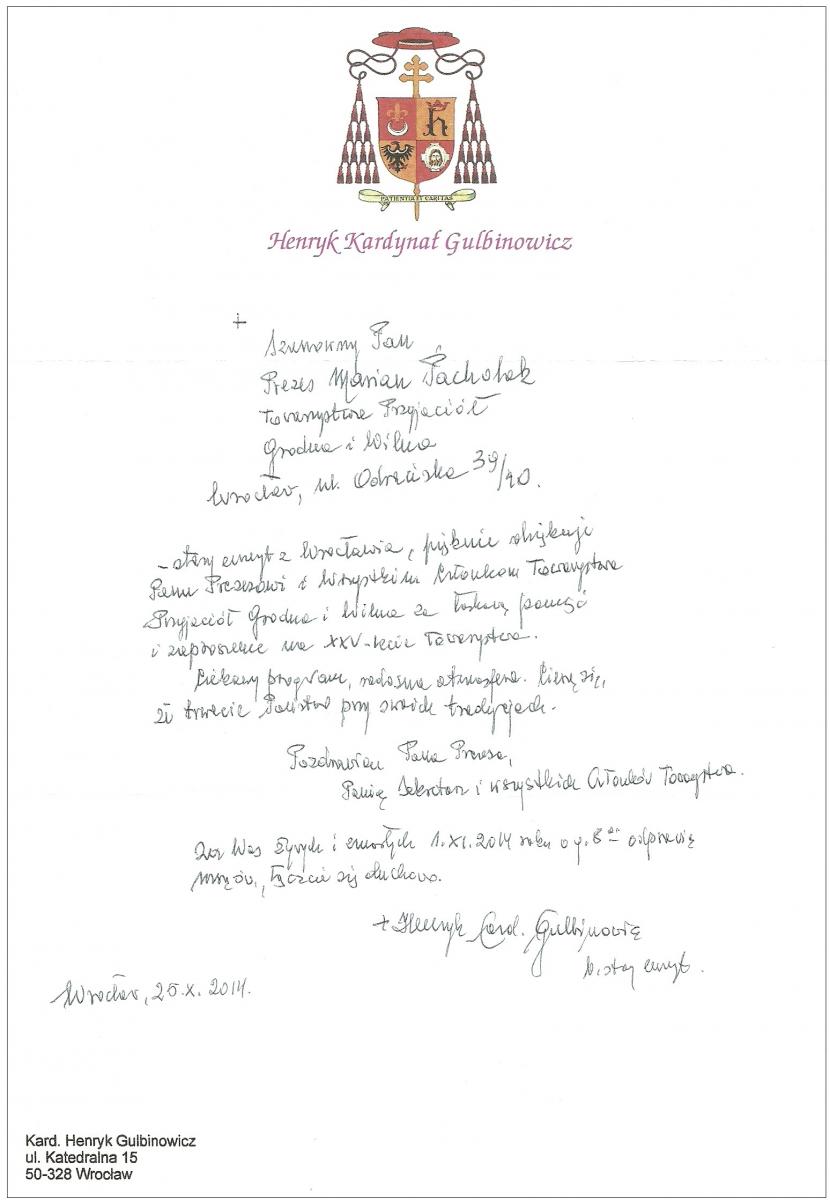 PATIENTIA ET CARITAS
Henryk Kardynał Gulbinowicz
+
Szanowny Pan
Prezes Marian Pacholak
Towarzystwa Przyjaciół
Grodna i Wilna
Wrocław, ul. Odrzańska 39/40.
– stary emeryt z Wrocławia, pięknie dziękuje
Panu Prezesowi i Wszystkim Członkom Towarzystwa
Przyjaciół Grodna i Wilna za łaskawą pamięć
i zaproszenie na XXV-lecie Towarzystwa.
Ciekawy program, radosna atmosfera. Cieszę się,
że trwacie Państwo przy swoich tradycjach.
Pozdrawiam Pana Prezesa,
Panią Sekretarz i wszystkich Członków Towarzystwa.
Za Was żywych i zmarłych 1.XI.2014 roku o g. odprawię
łączcie się duchowo.
+ Henryk Card. Gulbinowicz
emeryt.
Wrocław, 25.X.2014.
Kard. Henryk Gulbinowicz
ul. Katedralna 15
50-328 Wrocław